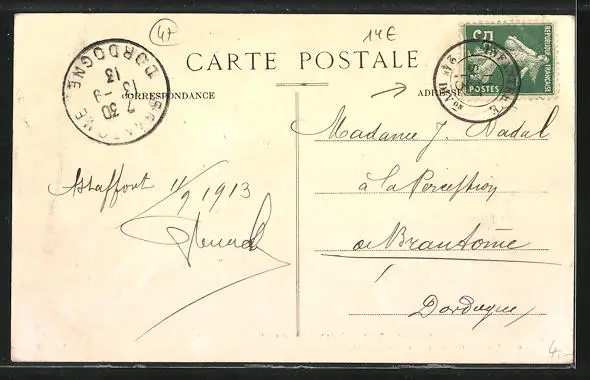 47
14€
CARTE POSTALE
CORRESPONDANCE
ADRESSE
BRANTOME
DORDOGNE
7 30
13 -9
13
5c
REPUBLIQUE FRANÇAISE
POSTES
Madame J. Nadal
à la Perception
de Brantôme
Dordogne
Astaffort 11/9 1913
4,-